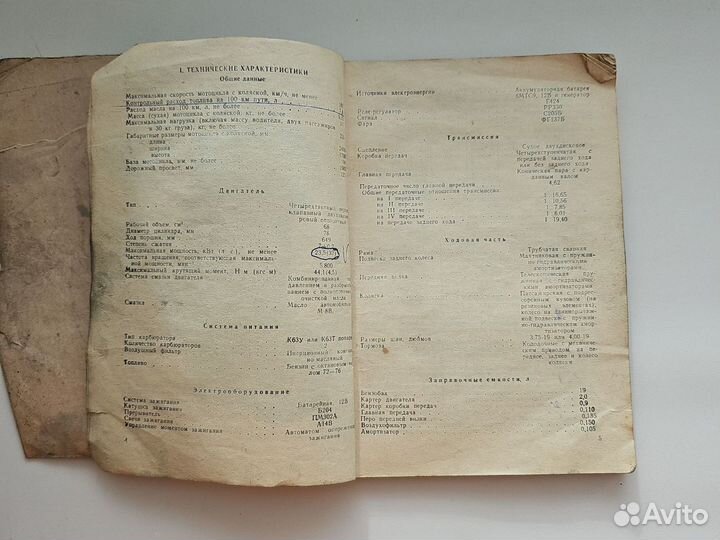 1. ТЕХНИЧЕСКИЕ ХАРАКТЕРИСТИКИ
Общие данные
Максимальная скорость мотоцикла с коляской, км/ч, не менее
Контрольный расход топлива на 100 км пути, л
Расход масла на 100 км, л, не более
Масса (сухая) мотоцикла с коляской, кг, не более
Максимальная нагрузка (включая массу водителя, двух пассажиров
и 30 кг груза), кг, не более
Габаритные размеры мотоцикла с коляской, мм
длина
ширина
высота
База мотоцикла, мм, не более
Дорожный просвет, мм
Двигатель
Тип
Рабочий объем, см³
Диаметр цилиндра, мм 78
Ход поршня, мм
Степень сжатия
Максимальная мощность, кВт (л. с.), не менее 23,5(32)
Частота вращения, соответствующая максималь-
ной мощности, мин 5 800
Максимальный крутящий момент, Н·м (кгс·м) 44,1(4,5)
Система смазки двигателя Комбинированная
давлением и разбрыз
очисткой масла
Смазка Масло
М 8В
Система питания
Тип карбюратора К63У или К63Т
Количество карбюраторов 2
Воздушный фильтр
но масляный
Топливо Бензин с октановым чис
лом 72—76
Электрооборудование
Система зажигания Батарейная, 12В
Катушка зажигания Б204
Прерыватель ПМ302А
Свеча зажигания А14В
Управление моментом зажигания Автоматом опережения
зажигания
4
Источники электроэнергии Аккумуляторная батарея
6МТС9, 12В и генератор
Г424
Реле-регулятор РР330
Сигнал С205Б
Фара ФГ137Б
Трансмиссия
Сцепление Сухое двухдисковое
Коробка передач Четырехступенчатая с
передачей заднего хода
или без заднего хода
Главная передача Коническая пара с кар-
данным валом
Передаточное число главной передачи 4,62
Общие передаточные отношения трансмиссии
на I передаче 1 : 16,65
на II передаче 1 : 10,56
на III передаче 1 : 7,85
на IV передаче 1 : 6,01
на передаче заднего хода 1 : 19,40
Ходовая часть
Рама Трубчатая сварная
Подвеска заднего колеса Маятниковая с пружин-
но-гидравлическими
амортизаторами
Передняя вилка Телескопическая пру-
жинная с гидравлически-
ми амортизаторами
Коляска Пассажирская, с подрес-
соренным кузовом (на
резиновых элементах),
колесо на длиннорычаж-
ной подвеске с пружин-
но-гидравлическим амор-
тизатором
Размеры шин, дюймов 3,75-19 или 4,00-19
Тормоза Колодочные с механическим
приводом на пе-
реднее, заднее и колесо
коляски
Заправочные емкости, л
Бензобак 19
Картер двигателя 2,0
Картер коробки передач 0,9
Главная передача 0,110
Перо передней вилки 0,135
Воздухофильтр 0,150
Амортизатор 0,105
5
Avito